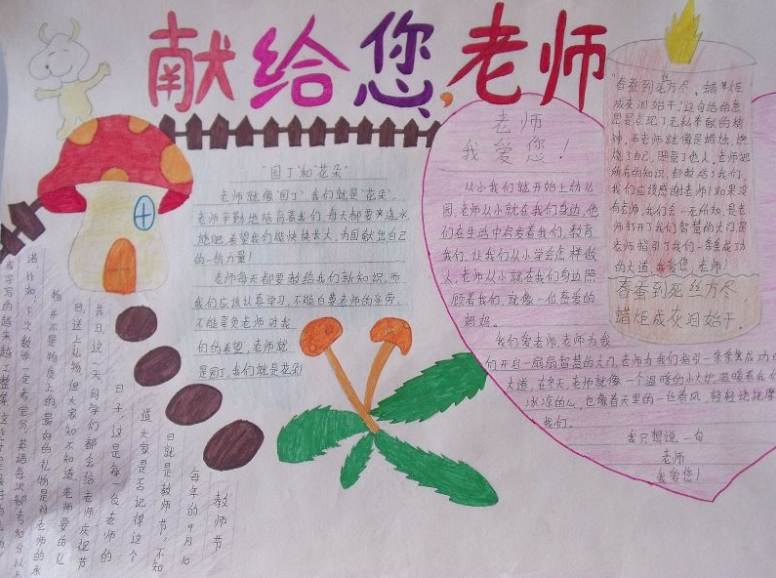 献给您,老师
"园丁"和"花朵"
老师就像"园丁",我们就是"花朵",
老师辛勤地培育着我们,每天都要来浇水
施肥,希望我们能快快长大,为国献出自己
的一份力量!
老师每天都要教给我们新知识,而
我们应该认真学习,不能白费老师的辛劳,
不能辜负老师对我
们的希望,老师就
是园丁,我们就是花朵!
老师
我爱您!
从小我们就开始上幼儿
园,老师从小就在我们身边,他
们在生活中关爱着我们,教育
我们,让我们从小学会怎样做
人,老师从小就在我们身边照
顾着我们,就像一位慈爱的
妈妈。
我们爱老师,老师为我
们开启一扇扇智慧的大门,老师为我们指引一条条成功的
大道,在冬天,老师就像一个温暖的小火炉,温暖着我们
冰凉的心,也像春天里的一丝春风,轻轻地抚摸
我们。
我只想说一句
老师
我爱您!
"春蚕到死丝方尽,蜡炬
成灰泪始干。"这句话的意
思是表现了无私奉献的精
神,而老师就像是蜡烛,燃
烧了自己,照亮了他人,老师把
所有的知识,都教给了我们,
我们应该感谢老师!如果没
有老师,我们会一无所知,是老
师打开了我们智慧的大门,是
老师指引了我们一条条成功
的大道,我爱您,老师!
春蚕到死丝方尽
蜡炬成灰泪始干。
教师节
每年的9月10
日就是教师节,不知
道大家是否记得这个
日子,这是每一位老师的
节日,这一天同学们都会给老师庆祝节
日,送上礼物,但大家知不知道,老师要的礼
物并不是物质上的,最好的礼物是对老师的承
诺,比如,下次数学一定考